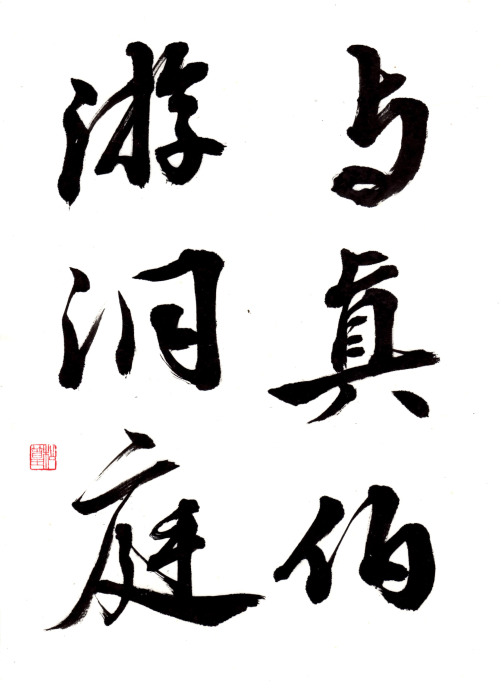 与真伯
游洞庭